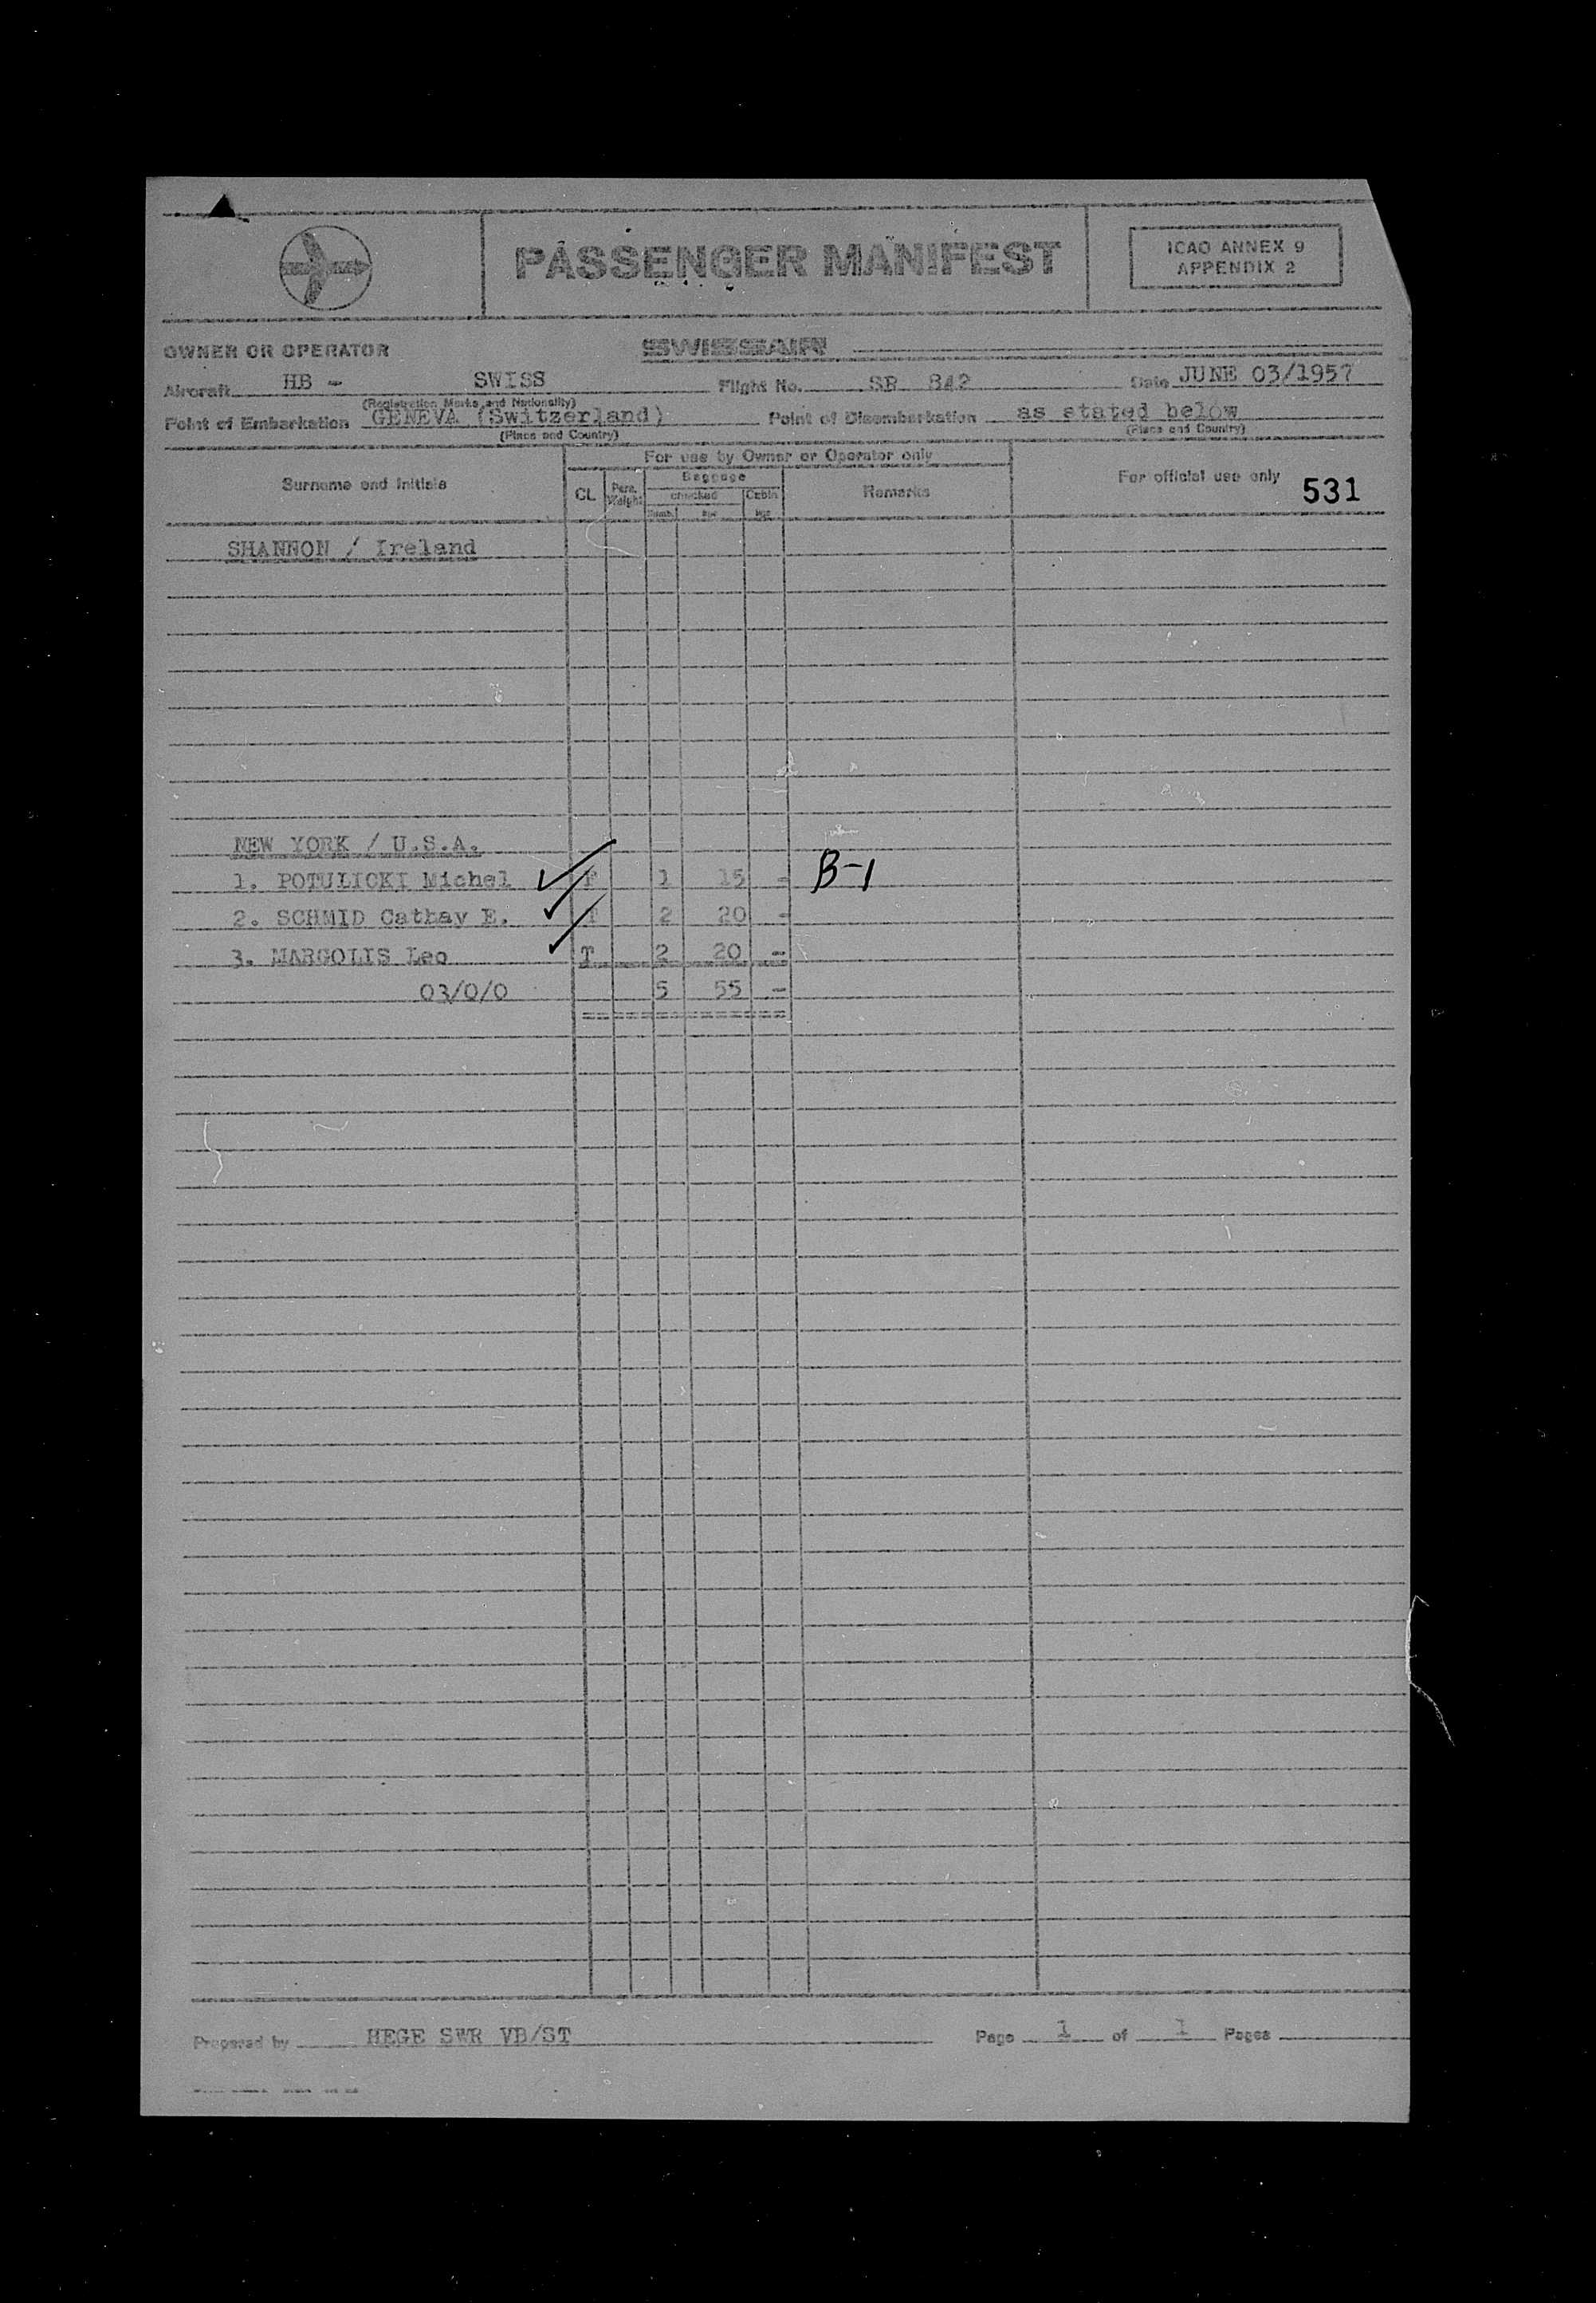 PASSENGER MANIFEST
ICAO ANNEX 9
APPENDIX 2
OWNER OR OPERATOR SWISSAIR
Aircraft HB - SWISS Flight No. SR 842 Date JUNE 03/1957
(Registration Marks and Nationality)
Point of Embarkation GENEVA (Switzerland) Point of Disembarkation as stated below
(Place and Country) (Place and Country)
For use by Owner or Operator only
Surname and Initials CL Pers. Weight Baggage checked Cabin Remarks For official use only 531
Numb. kgs kgs
SHANNON / Ireland
NEW YORK / U.S.A.
1. POTULICKI Michel T 1 15 - B-1
2. SCHMID Cathay E. T 2 20 -
3. MARGOLIS Leo T 2 20 -
03/0/0 5 55 -
Prepared by HEGE SWR VB/ST Page 1 of 1 Pages